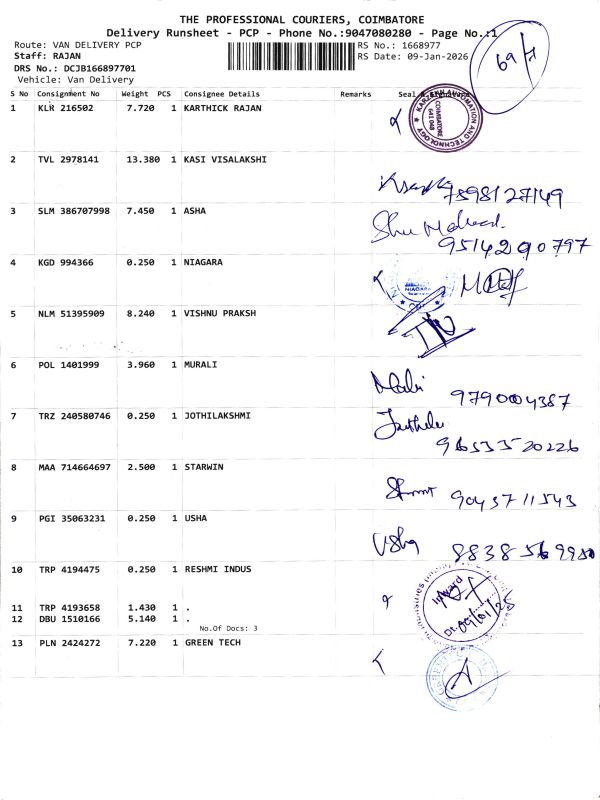 THE PROFESSIONAL COURIERS, COIMBATORE
Delivery Runsheet - PCP - Phone No.:9047080280 - Page No.:1
Route: VAN DELIVERY PCP RS No.: 1668977
Staff: RAJAN RS Date: 09-Jan-2026
DRS No.: DCJB166897701
Vehicle: Van Delivery
69
S No Consignment No Weight PCS Consignee Details Remarks Seal
1 KLR 216502 7.720 1 KARTHICK RAJAN
COIMBATORE 641 048
2 TVL 2978141 13.380 1 KASI VISALAKSHI
7598127149
3 SLM 386707998 7.450 1 ASHA
9514290797
4 KGD 994366 0.250 1 NIAGARA
NIAGARA
5 NLM 51395909 8.240 1 VISHNU PRAKSH
6 POL 1401999 3.960 1 MURALI
9790004387
7 TRZ 240580746 0.250 1 JOTHILAKSHMI
9653520226
8 MAA 714664697 2.500 1 STARWIN
9043711543
9 PGI 35063231 0.250 1 USHA
Usha 8838569950
10 TRP 4194475 0.250 1 RESHMI INDUS
Inward
11 TRP 4193658 1.430 1 .
12 DBU 1510166 5.140 1 .
No.Of Docs: 3
13 PLN 2424272 7.220 1 GREEN TECH